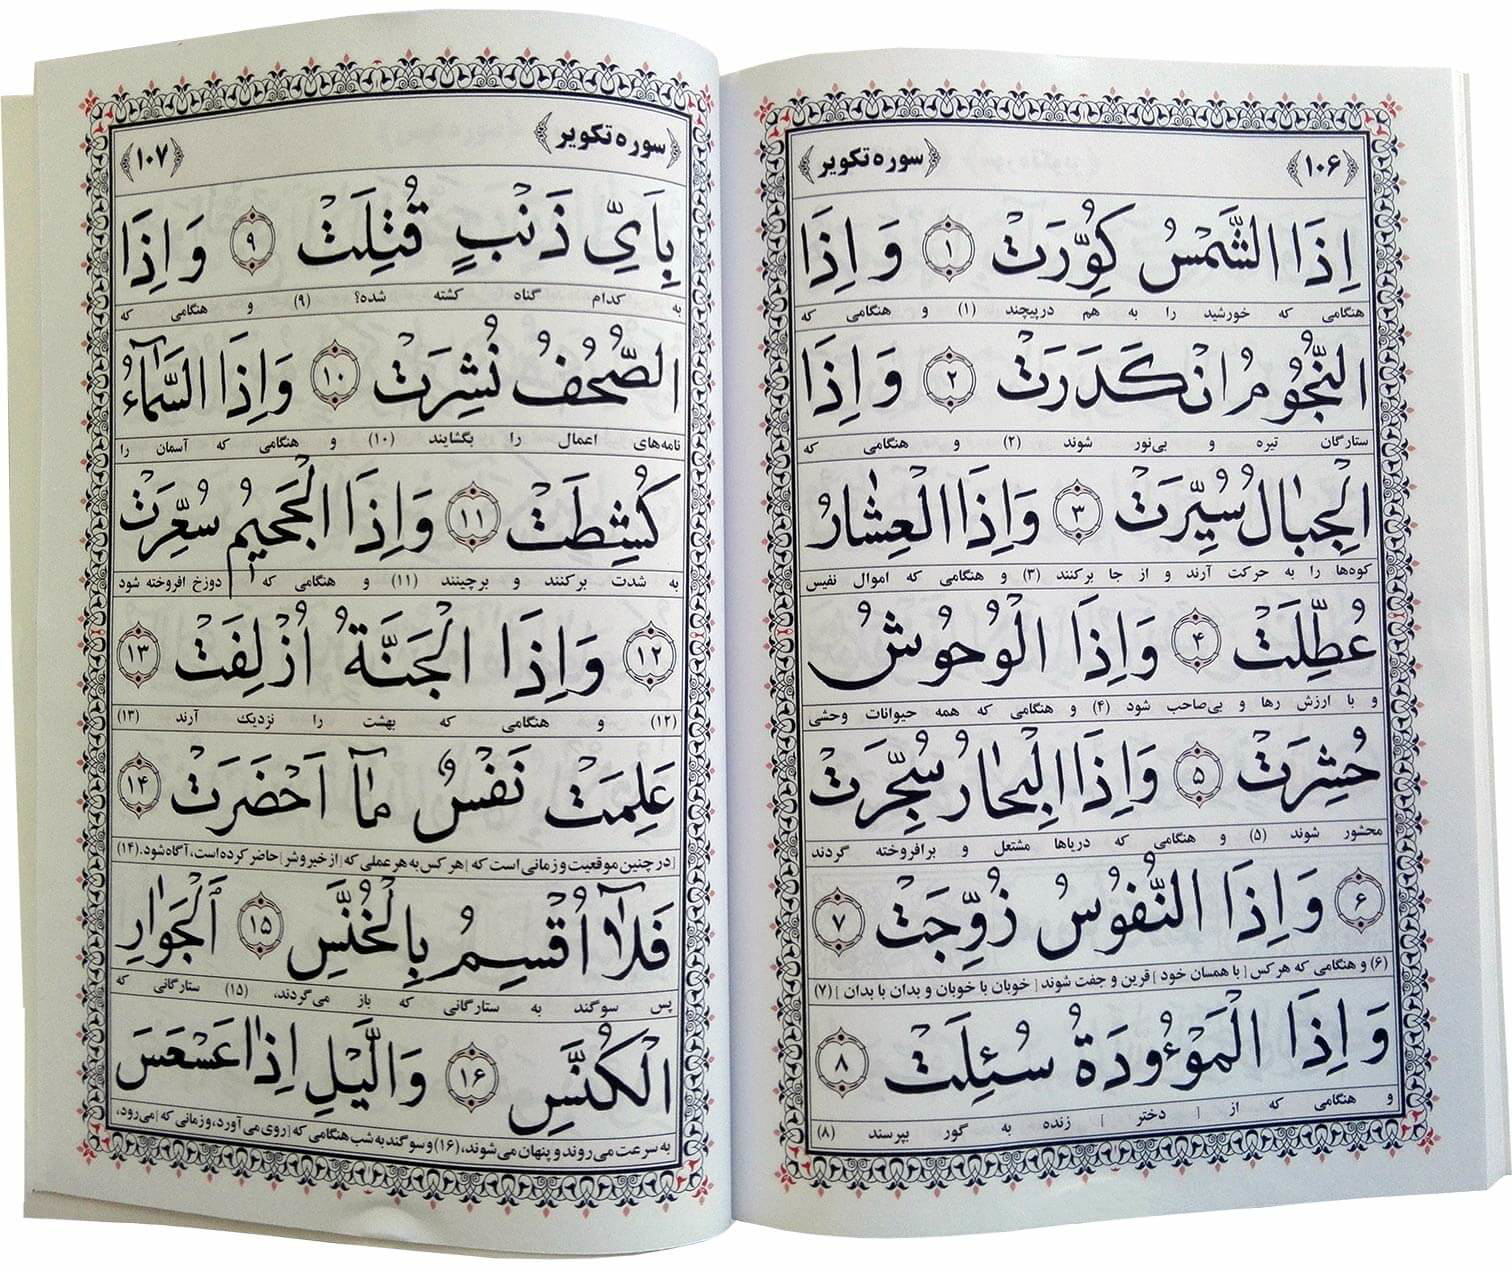 ﴿۱۰۶﴾ ﴿سوره تکویر﴾
اِذَا الشَّمْسُ كُوِّرَتْ ۱ وَ اِذَا
هنگامی که خورشید را به هم درپیچند (۱) و هنگامی که
النُّجُومُ انْكَدَرَتْ ۲ وَ اِذَا
ستارگان تیره و بی‌نور شوند (۲) و هنگامی که
الْجِبٰالُ سُيِّرَتْ ۳ وَ اِذَا الْعِشٰارُ
کوه‌ها را به حرکت آرند و از جا برکنند (۳) و هنگامی که اموال نفیس
عُطِّلَتْ ۴ وَ اِذَا الْوُحُوشُ
و با ارزش رها و بی‌صاحب شود (۴) و هنگامی که همه حیوانات وحشی
حُشِرَتْ ۵ وَ اِذَا الْبِحٰارُ سُجِّرَتْ
محشور شوند (۵) و هنگامی که دریاها مشتعل و برافروخته گردند
۶ وَ اِذَا النُّفُوسُ زُوِّجَتْ ۷
(۶) و هنگامی که هر کس [با همسان خود] قرین و جفت شوند [خوبان با خوبان و بدان با بدان] (۷)
وَ اِذَا الْمَوْؤُودَةُ سُئِلَتْ ۸
و هنگامی که از [دختر] زنده به گور بپرسند (۸)
﴿سوره تکویر﴾ ﴿۱۰۷﴾
بِاَيِّ ذَنْبٍ قُتِلَتْ ۹ وَ اِذَا
به کدام گناه کشته شده؟ (۹) و هنگامی که
الصُّحُفُ نُشِرَتْ ۱۰ وَ اِذَا السَّمٰٓاءُ
نامه‌های اعمال را بگشایند (۱۰) و هنگامی که آسمان را
كُشِطَتْ ۱۱ وَ اِذَا الْجَحِيمُ سُعِّرَتْ
به شدت برکنند و برچینند (۱۱) و هنگامی که دوزخ افروخته شود
۱۲ وَ اِذَا الْجَنَّةُ اُزْلِفَتْ ۱۳
(۱۲) و هنگامی که بهشت را نزدیک آرند (۱۳)
عَلِمَتْ نَفْسٌ مٰٓا اَحْضَرَتْ ۱۴
[در چنین موقعیت و زمانی است که] هر کس به هر عملی که [از خیر و شر] حاضر کرده است، آگاه شود. (۱۴)
فَلٰٓا اُقْسِمُ بِالْخُنَّسِ ۱۵ اَلْجَوٰارِ
پس سوگند به ستارگانی که باز می‌گردند، (۱۵) ستارگانی که
الْكُنَّسِ ۱۶ وَ الَّيْلِ اِذٰا عَسْعَسَ
به سرعت می‌روند و پنهان می‌شوند، (۱۶) و سوگند به شب هنگامی که [روی می‌آورد، و زمانی که] می‌رود،